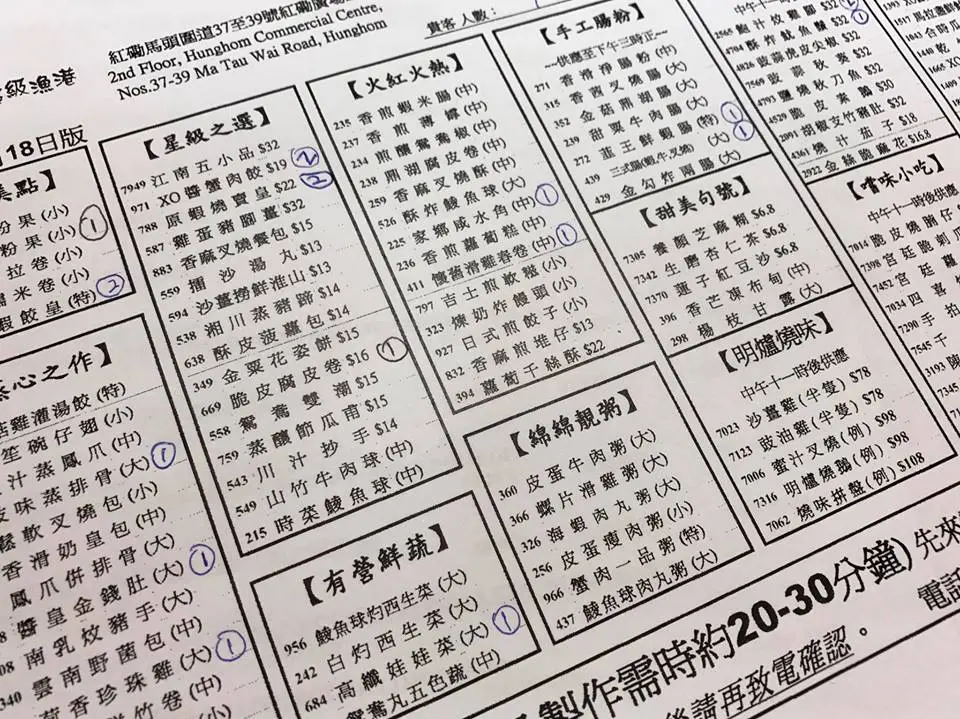 紅磡馬頭圍道37至39號紅磡廣場
2nd Floor, Hunghom Commercial Centre,
Nos.37-39 Ma Tau Wai Road, Hunghom
貴客人數：
級漁港
18日版
美點】
粉果(小)
粉果(小)
拉卷(小)
米卷(小)
蝦餃皇(特)
①
②
心之作】
雞灌湯餃(特)
笙碗仔翅(小)
汁蒸鳳爪(中)
味蒸排骨(大)
鬆軟叉燒包(小)
香滑奶皇包(中)
鳳爪併排骨(大)
醬皇金錢肚(大)
南乳炆豬手(大)
340 雲南野菌包(中)
荷香珍珠雞(大)
鮮竹卷(中)
①
①
①
【星級之選】
7949 江南五小品 $32
971 XO醬蟹肉餃 $19
788 原蝦燒賣皇 $22
587 雞蛋豬腳薑 $32
883 香麻叉燒餐包 $15
559 擂沙湯丸 $13
594 沙薑撈鮮淮山 $13
538 湘川蒸豬蹄 $14
638 酥皮菠蘿包 $14
349 金粟花姿餅 $15
669 脆皮腐皮卷 $16
558 鴛鴦雙潮 $15
759 蒸釀節瓜甫 $15
543 川汁抄手 $14
549 山竹牛肉球(中)
215 時菜鯪魚球(中)
②
②
①
【有營鮮蔬】
956 鯪魚球灼西生菜(大)
242 白灼西生菜(大)
684 高纖娃娃菜(大)
鴛鴦丸五色蔬(中)
①
【火紅火熱】
235 香煎蝦米腸(中)
237 香煎薄罉(中)
234 煎釀鴛鴦椒(中)
238 鼎湖腐皮卷(中)
259 香麻叉燒酥(中)
526 酥炸鯪魚球(大)
225 家鄉咸水角(中)
236 香煎蘿蔔糕(中)
411 懷舊滑雞春卷(中)
797 吉士煎軟糍(小)
323 煉奶炸饅頭(小)
927 日式煎餃子(小)
832 香麻煎堆仔 $13
394 蘿蔔千絲酥 $22
①
①
【綿綿靚粥】
360 皮蛋牛肉粥(大)
366 螺片滑雞粥(大)
326 海蝦肉丸粥(大)
256 皮蛋瘦肉粥(小)
966 蟹肉一品粥(特)
437 鯪魚球肉丸粥(大)
【手工腸粉】
~~供應至下午三時正~~
271 香滑淨腸粉(中)
315 香茜叉燒腸(大)
352 金菇鼎湖腸(大)
239 甜粟牛肉腸(大)
272 韮王鮮蝦腸(特)
439 三式腸(蝦牛叉燒)(大)
429 金勾炸兩腸(大)
①
①
【甜美句號】
7305 養顏芝麻糊 $6.8
7342 生磨杏仁茶 $6.8
7370 蓮子紅豆沙 $6.8
396 香芒凍布甸(中)
298 楊枝甘露(大)
【明爐燒味】
中午十一時後供應
7023 沙薑雞(半隻) $78
7123 豉油雞(半隻) $78
7006 蜜汁叉燒(例) $98
7316 明爐燒鵝(例) $98
7062 燒味拼盤(例) $108
中午十一時
2565 鮑汁炆雞腳 $32
4704 酥炸魷魚鬚 $32
4826 豉蒜虎皮尖椒 $32
7569 豉蒜秋葵 $32
4793 鹽燒秋刀魚 $32
4529 脆皮素鵝 $30
2991 胡椒支竹豬肚 $32
4361 燒汁茄子 $18
2922 金絲脆麻花 $16.8
【嚐味小吃】
中午十一時後供應
7014 脆皮燒腩仔
7398 宮廷脆
7452 宮廷
7034 四喜
7290 手拍
7545 千
3193 陳
1393
1517 馬拉
1043 合時
1440 乾
1665 XO
製作需時約20-30分鐘) 先來
後請再致電確認。
電話